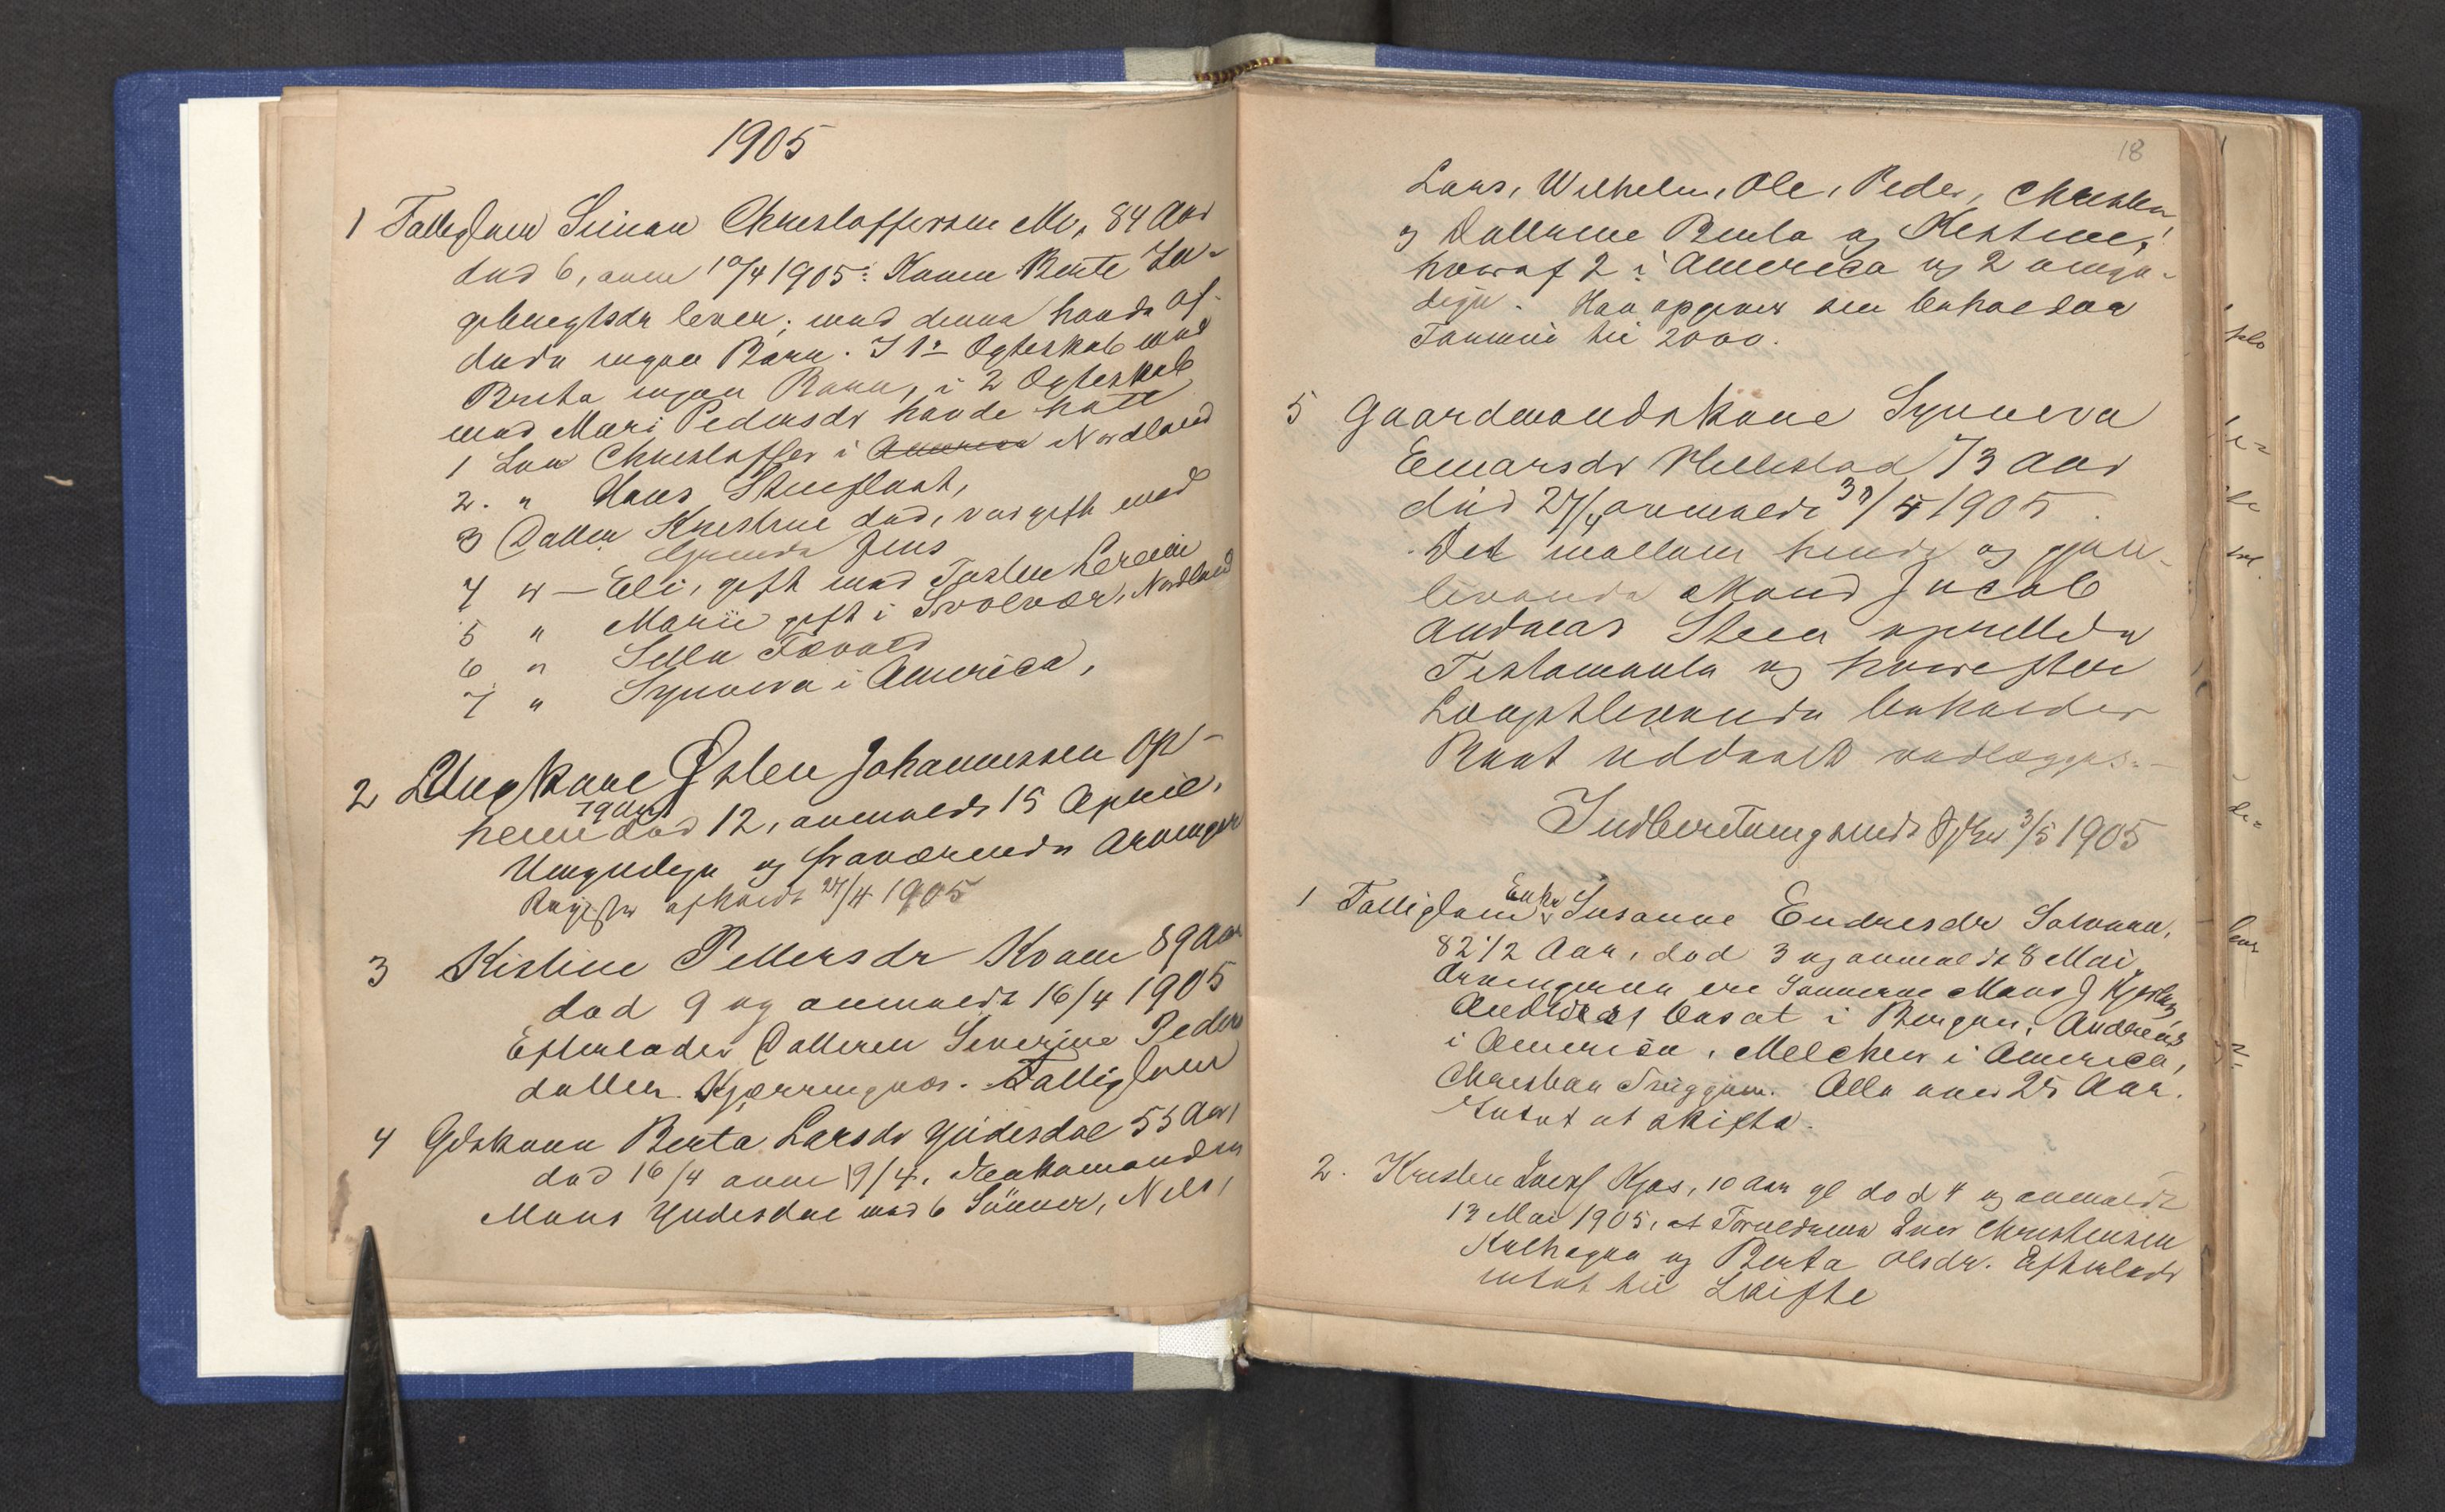 1905
1 Fattiglem Simon Christoffersen Mo, 84 Aar
død 6, anm 10/4 1905. Konen Brite In-
gebregtsdr lever; med denne havde Af-
døde ingen Børn. I 1ste Ægteskab med
Brita ingen Børn, i 2 Ægteskab
med Mari Pedersdr havde hatt
1 Søn Christoffer i America Nordland
2. " Hans Stenflaat,
3 Datter Kristine død, var gift med
Jens
4 " - Eli, gift med Torsten
5 " Marie gift i Svolvær, Nordland
6 " Sella
7 " Synneva i America,
2 Ungkarl Østen Johannessen Op-
79 Aar
heim død 12, anmeldt 15 April,
Umyndige og fraværende Arvinger
afholdt 27/4 1905
3 Kistine Pettersdr Kvam 89 Aar
død 9 og anmeldt 16/4 1905
Efterlader Datteren Severine Peders
datter Kjærringnes. Fattiglem
4 Gdskone Berta Larsdr Yndesdal 55 Aar,
død 16/4 anm 19/4. Enkemanden
Mons Yndesdal med 6 Sønner, Nils,
18
Lars, Wilhelm, Ole, Peder, Christen
og Døttrene Berta og Kristine,
hvoraf 2 i America og 2 umyn-
dige. Han opgiver sin beholdne
Formue til 2000.
5 Gaardmandskone Synneva
Einarsdr Hellestad 73 Aar
død 27/4 anmeldt 30/4 1905.
Det mellem hende og gjen-
levende Mand Jacob
Andreas Steen oprettede
Testamente og hvorefter
Længstlevende beholder
Boet uddeelt vedlægges. -
Indberetning sendt 3/5 1905
1 Fattiglem Enke Susanne Endresdr
82 1/2 Aar, død 3 og anmeldt 8 Mai,
Arvingerne ere Sønnerne Mons J
bosat i Bergen, Andreas
i America, Melcher i America,
Christian. Alle over 25 Aar.
Intet at skifte.
2. Kristen Kjos, 10 Aar gl død 4 og anmeldt
13 Mai 1905, af Forældrene Iver Christensen
og Berta Olsdr. Efterlader
intet til Skifte